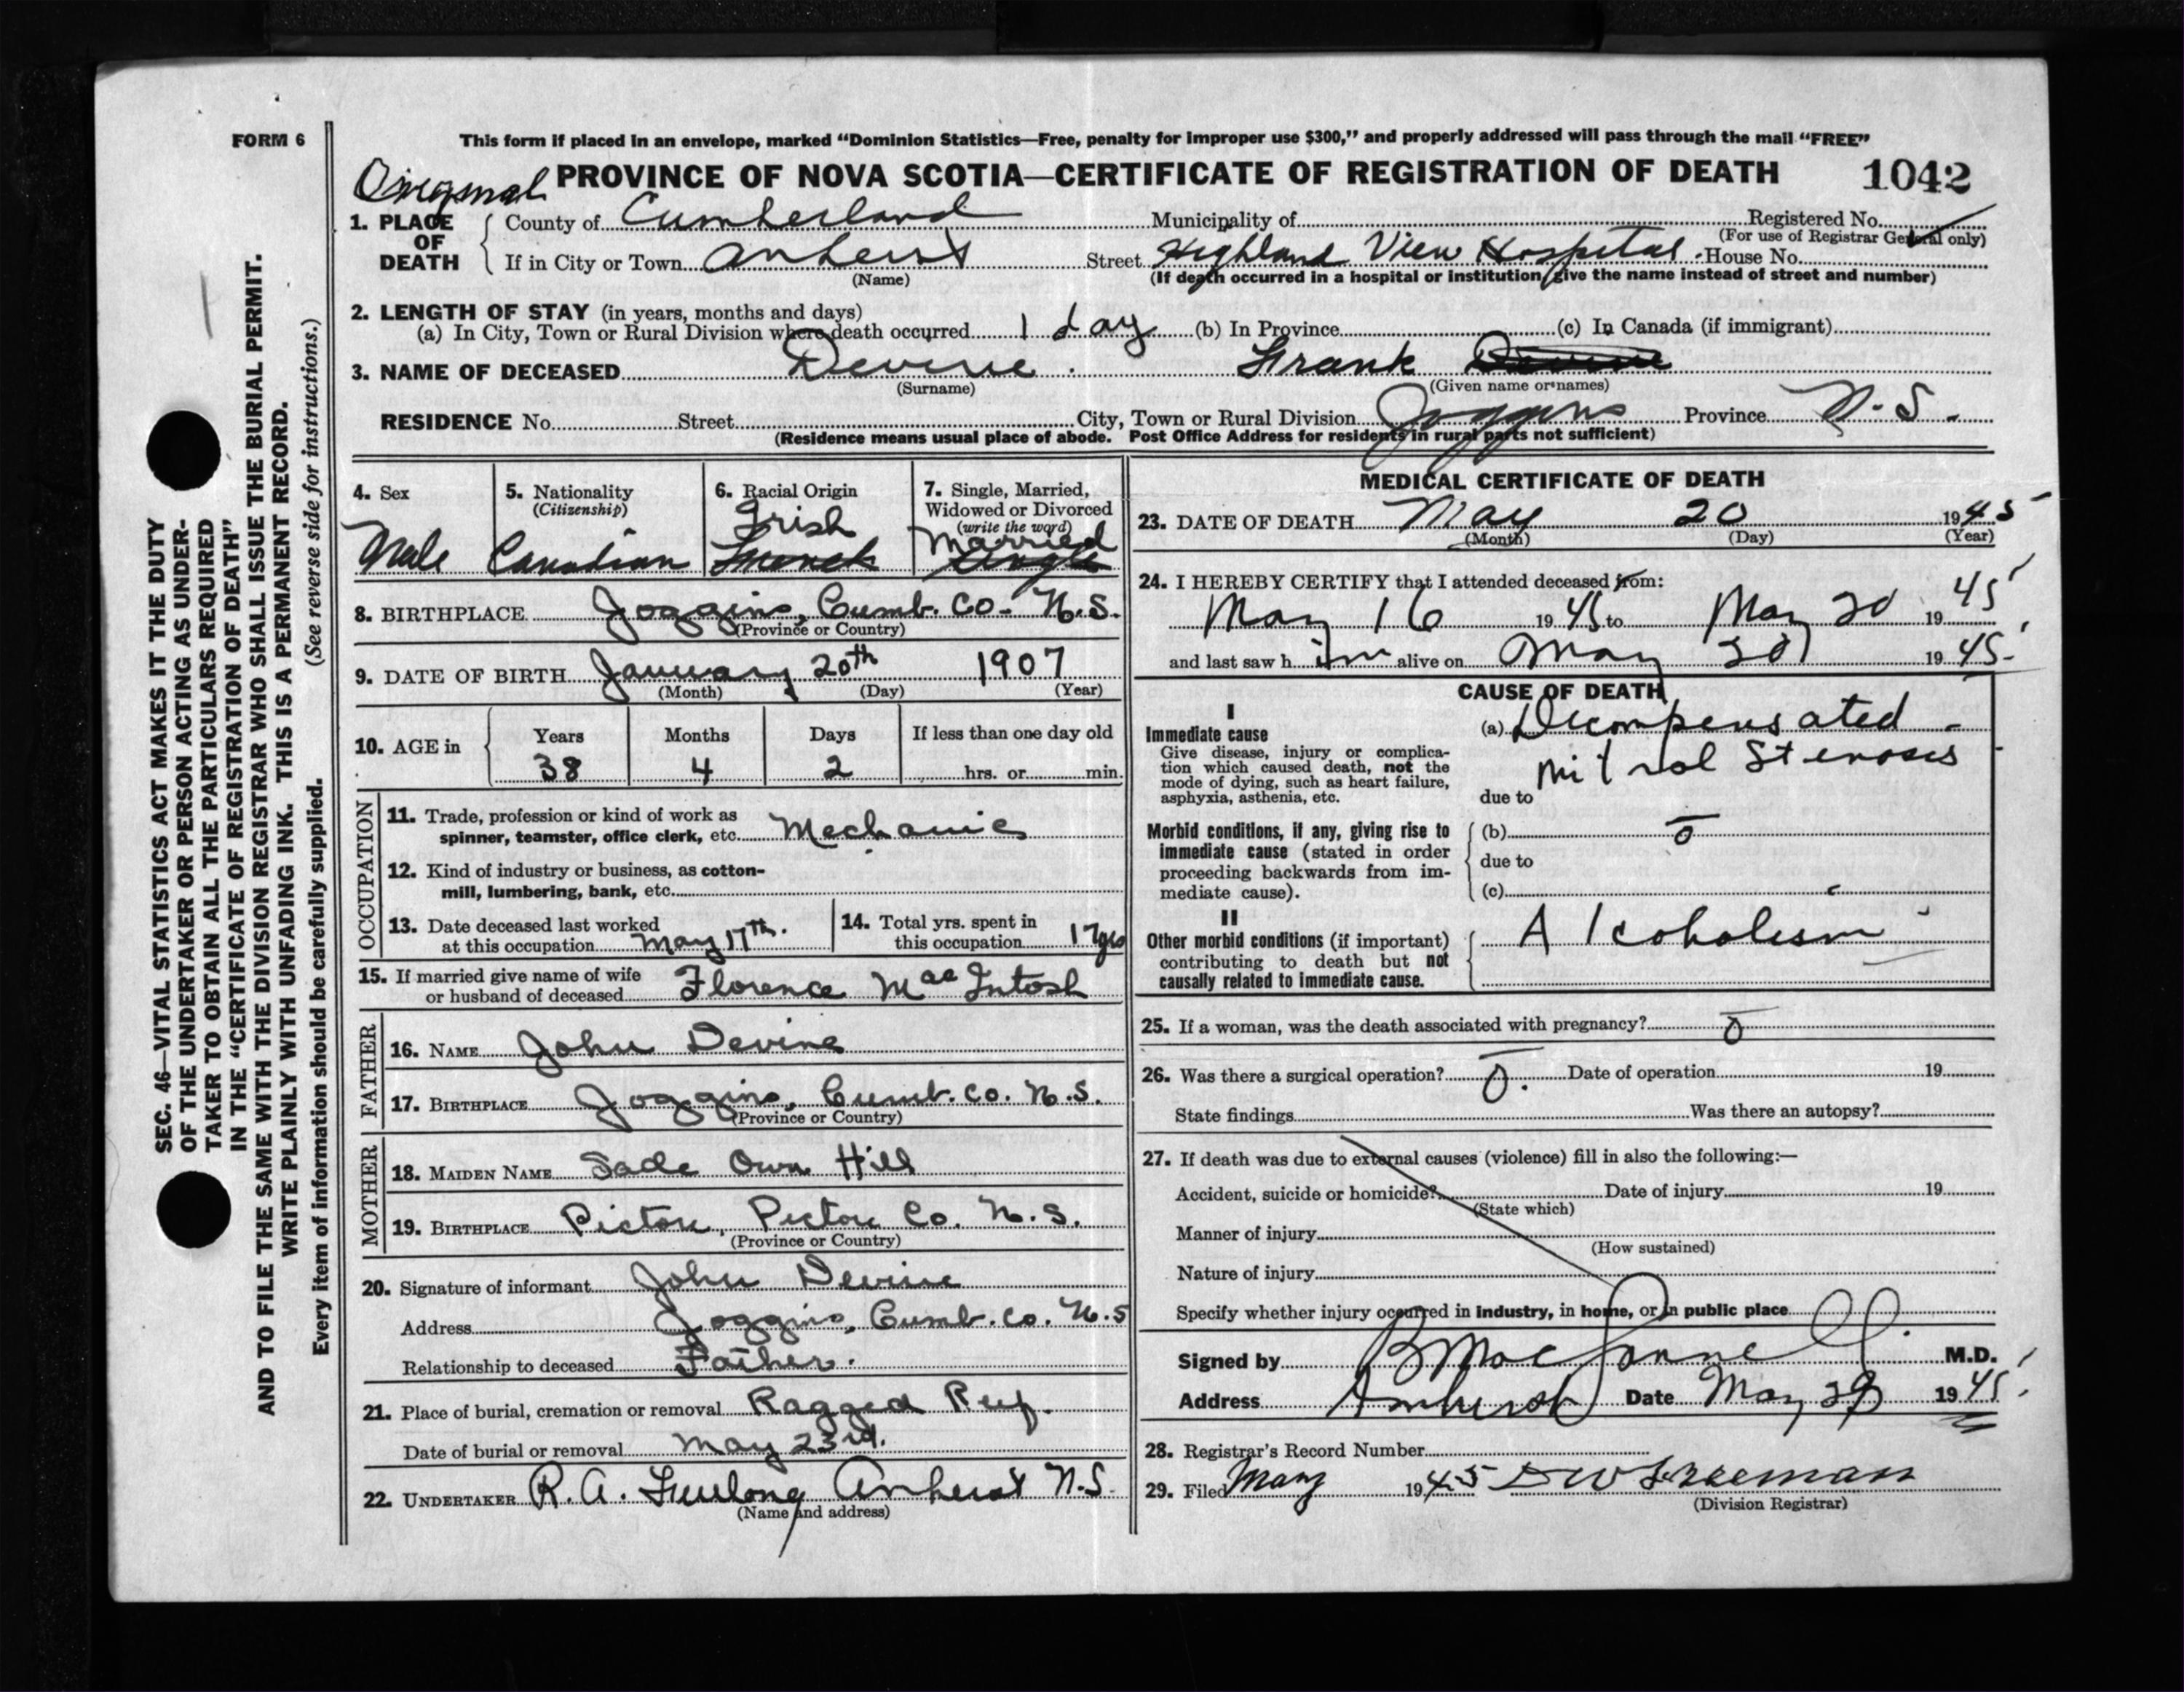 FORM 6
This form if placed in an envelope, marked “Dominion Statistics—Free, penalty for improper use $300,” and properly addressed will pass through the mail “FREE”
Original PROVINCE OF NOVA SCOTIA—CERTIFICATE OF REGISTRATION OF DEATH 1042
1. PLACE OF DEATH
County of Cumberland Municipality of Registered No.
(For use of Registrar General only)
If in City or Town Amherst Street Highland View Hospital House No.
(Name) (If death occurred in a hospital or institution, give the name instead of street and number)
2. LENGTH OF STAY (in years, months and days)
(a) In City, Town or Rural Division where death occurred 1 day (b) In Province (c) In Canada (if immigrant)
3. NAME OF DECEASED Devine Frank
(Surname) (Given name or names)
RESIDENCE No. Street City, Town or Rural Division Joggins Province N.S.
(Residence means usual place of abode. Post Office Address for residents in rural parts not sufficient)
4. Sex 5. Nationality 6. Racial Origin 7. Single, Married,
(Citizenship) Widowed or Divorced
(write the word)
Irish Married
Male Canadian French Single
8. BIRTHPLACE Joggins, Cumb. Co. N.S.
(Province or Country)
9. DATE OF BIRTH January 20th 1907
(Month) (Day) (Year)
10. AGE in Years Months Days If less than one day old
38 4 2 hrs. or min.
OCCUPATION
11. Trade, profession or kind of work as
spinner, teamster, office clerk, etc. Mechanic
12. Kind of industry or business, as cotton-
mill, lumbering, bank, etc.
13. Date deceased last worked
at this occupation May 17th.
14. Total yrs. spent in
this occupation 17 yrs
15. If married give name of wife
or husband of deceased Florence MacIntosh
FATHER
16. NAME John Devine
17. BIRTHPLACE Joggins, Cumb. Co. N.S.
(Province or Country)
MOTHER
18. MAIDEN NAME Sade Own Hill
19. BIRTHPLACE Pictou, Pictou Co. N.S.
(Province or Country)
20. Signature of informant John Devine
Address Joggins, Cumb. Co. N.S
Relationship to deceased Father.
21. Place of burial, cremation or removal Ragged Reef.
Date of burial or removal May 23rd.
22. UNDERTAKER R.A. Furlong Amherst N.S.
(Name and address)
MEDICAL CERTIFICATE OF DEATH
23. DATE OF DEATH May 20 1945
(Month) (Day) (Year)
24. I HEREBY CERTIFY that I attended deceased from:
May 16 1945 to May 20 1945
and last saw him alive on May 20 1945
CAUSE OF DEATH
I
Immediate cause
Give disease, injury or complica-
tion which caused death, not the
mode of dying, such as heart failure,
asphyxia, asthenia, etc.
(a) Decompensated
mitral Stenosis
due to
Morbid conditions, if any, giving rise to
immediate cause (stated in order
proceeding backwards from im-
mediate cause).
(b) o
due to
(c)
II
Other morbid conditions (if important)
contributing to death but not
causally related to immediate cause.
Alcoholism
25. If a woman, was the death associated with pregnancy? o
26. Was there a surgical operation? o. Date of operation 19
State findings Was there an autopsy?
27. If death was due to external causes (violence) fill in also the following:—
Accident, suicide or homicide? Date of injury 19
(State which)
Manner of injury
(How sustained)
Nature of injury
Specify whether injury occurred in industry, in home, or in public place
Signed by M.D.
Address Amherst Date May 1945
28. Registrar's Record Number
29. Filed May 1945 D W Freeman
(Division Registrar)
SEC. 46—VITAL STATISTICS ACT MAKES IT THE DUTY
OF THE UNDERTAKER OR PERSON ACTING AS UNDER-
TAKER TO OBTAIN ALL THE PARTICULARS REQUIRED
IN THE “CERTIFICATE OF REGISTRATION OF DEATH”
AND TO FILE THE SAME WITH THE DIVISION REGISTRAR WHO SHALL ISSUE THE BURIAL PERMIT.
WRITE PLAINLY WITH UNFADING INK. THIS IS A PERMANENT RECORD.
Every item of information should be carefully supplied. (See reverse side for instructions.)